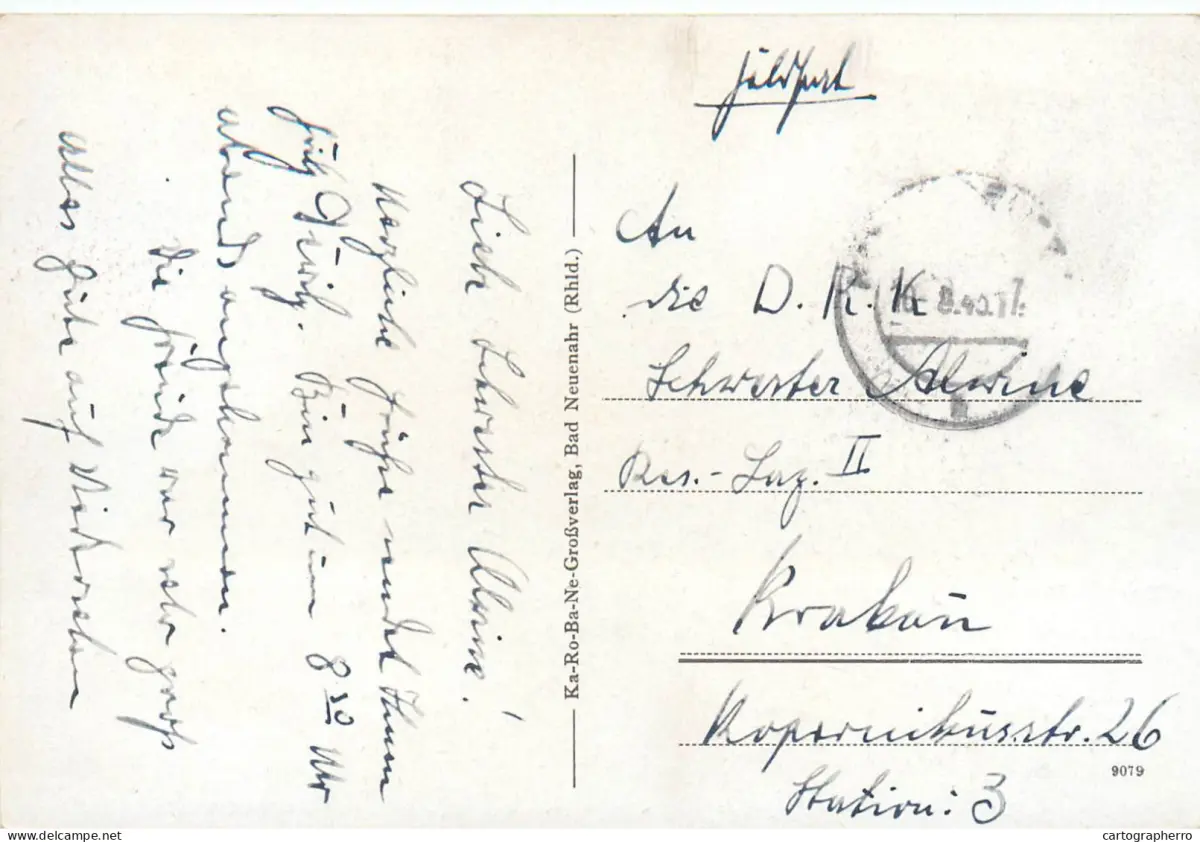 Feldpost
An
die D. R. K
Schwester Alwine
Res.-Laz. II
Krakau
Kopernikusstr. 26
Station: 3
9079
16.8.40.17
Ka-Ro-Ba-Ne-Großverlag, Bad Neuenahr (Rhld.)
Liebe Schwester Alwine!
Herzliche Grüße sendet Ihnen
Bin gut um 8 30 Uhr
abends angekommen.
Die Freude war sehr groß
Alles Gute auf Wiedersehen
cartographerro.com